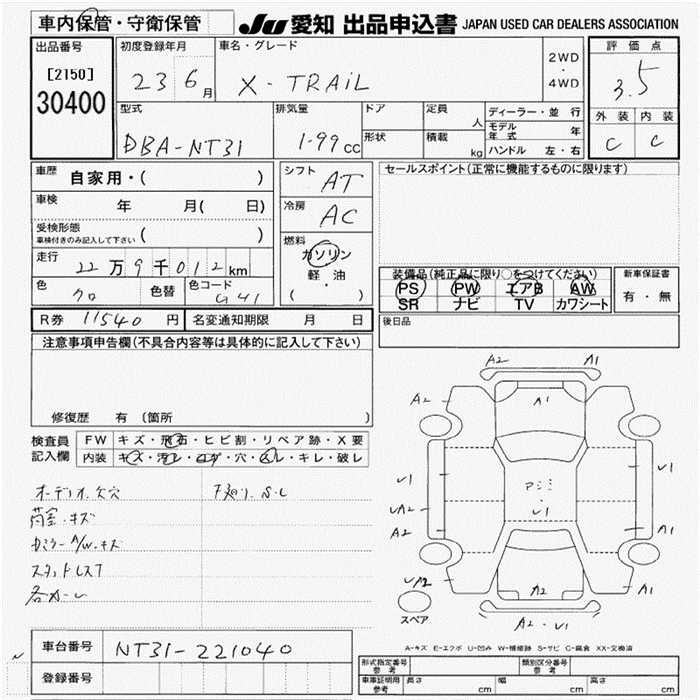 車内保管・守衛保管 JU 愛知 出品申込書 JAPAN USED CAR DEALERS ASSOCIATION
出品番号 初度登録年月 車名・グレード 2WD・4WD 評価点
[2150] 30400 23 6月 X-TRAIL 3.5
型式 排気量 ドア 定員 人 ディーラー・並行 外装 内装
DBA-NT31 1.99cc 形状 積載 kg モデル年式 年 C C
ハンドル 左・右
車歴 自家用・( ) シフト AT セールスポイント(正常に機能するものに限ります)
車検 年 月( 日) 冷房 AC
受検形態 車検付きのみ記入して下さい ( )
走行 22万9千012km 燃料 ガソリン 軽・油 ( ・ )
装備品(純正品に限り○をつけてください) 新車保証書
色 クロ 色替 色コード G41 PS PW エアB AW 有・無
SR ナビ TV カワシート
R券 11540円 名変通知期限 月 日 後日品
注意事項申告欄(不具合内容等は具体的に記入して下さい)
修復歴 有 (箇所 )
検査員記入欄 FW キズ・飛石・ヒビ割・リペア跡・X要
内装 キズ・汚レ・コゲ・穴・スレ・キレ・破レ
オーディオ欠穴 下廻り.S.C
荷室.キズ
A/W.キズ
A2 A1
A2 A1 A1
U1 U1
U1
UA2
A2 A1
UA2 A2 A1
スペア A2・U1
A-キズ E-エクボ U-凹み W-補修跡 S-サビ C-腐食 XX-交換済
車台番号 NT31-221040
登録番号
形式指定番号 参考 類別区分番号 参考
車庫証明用 参考 長さ cm 幅 cm 高さ cm